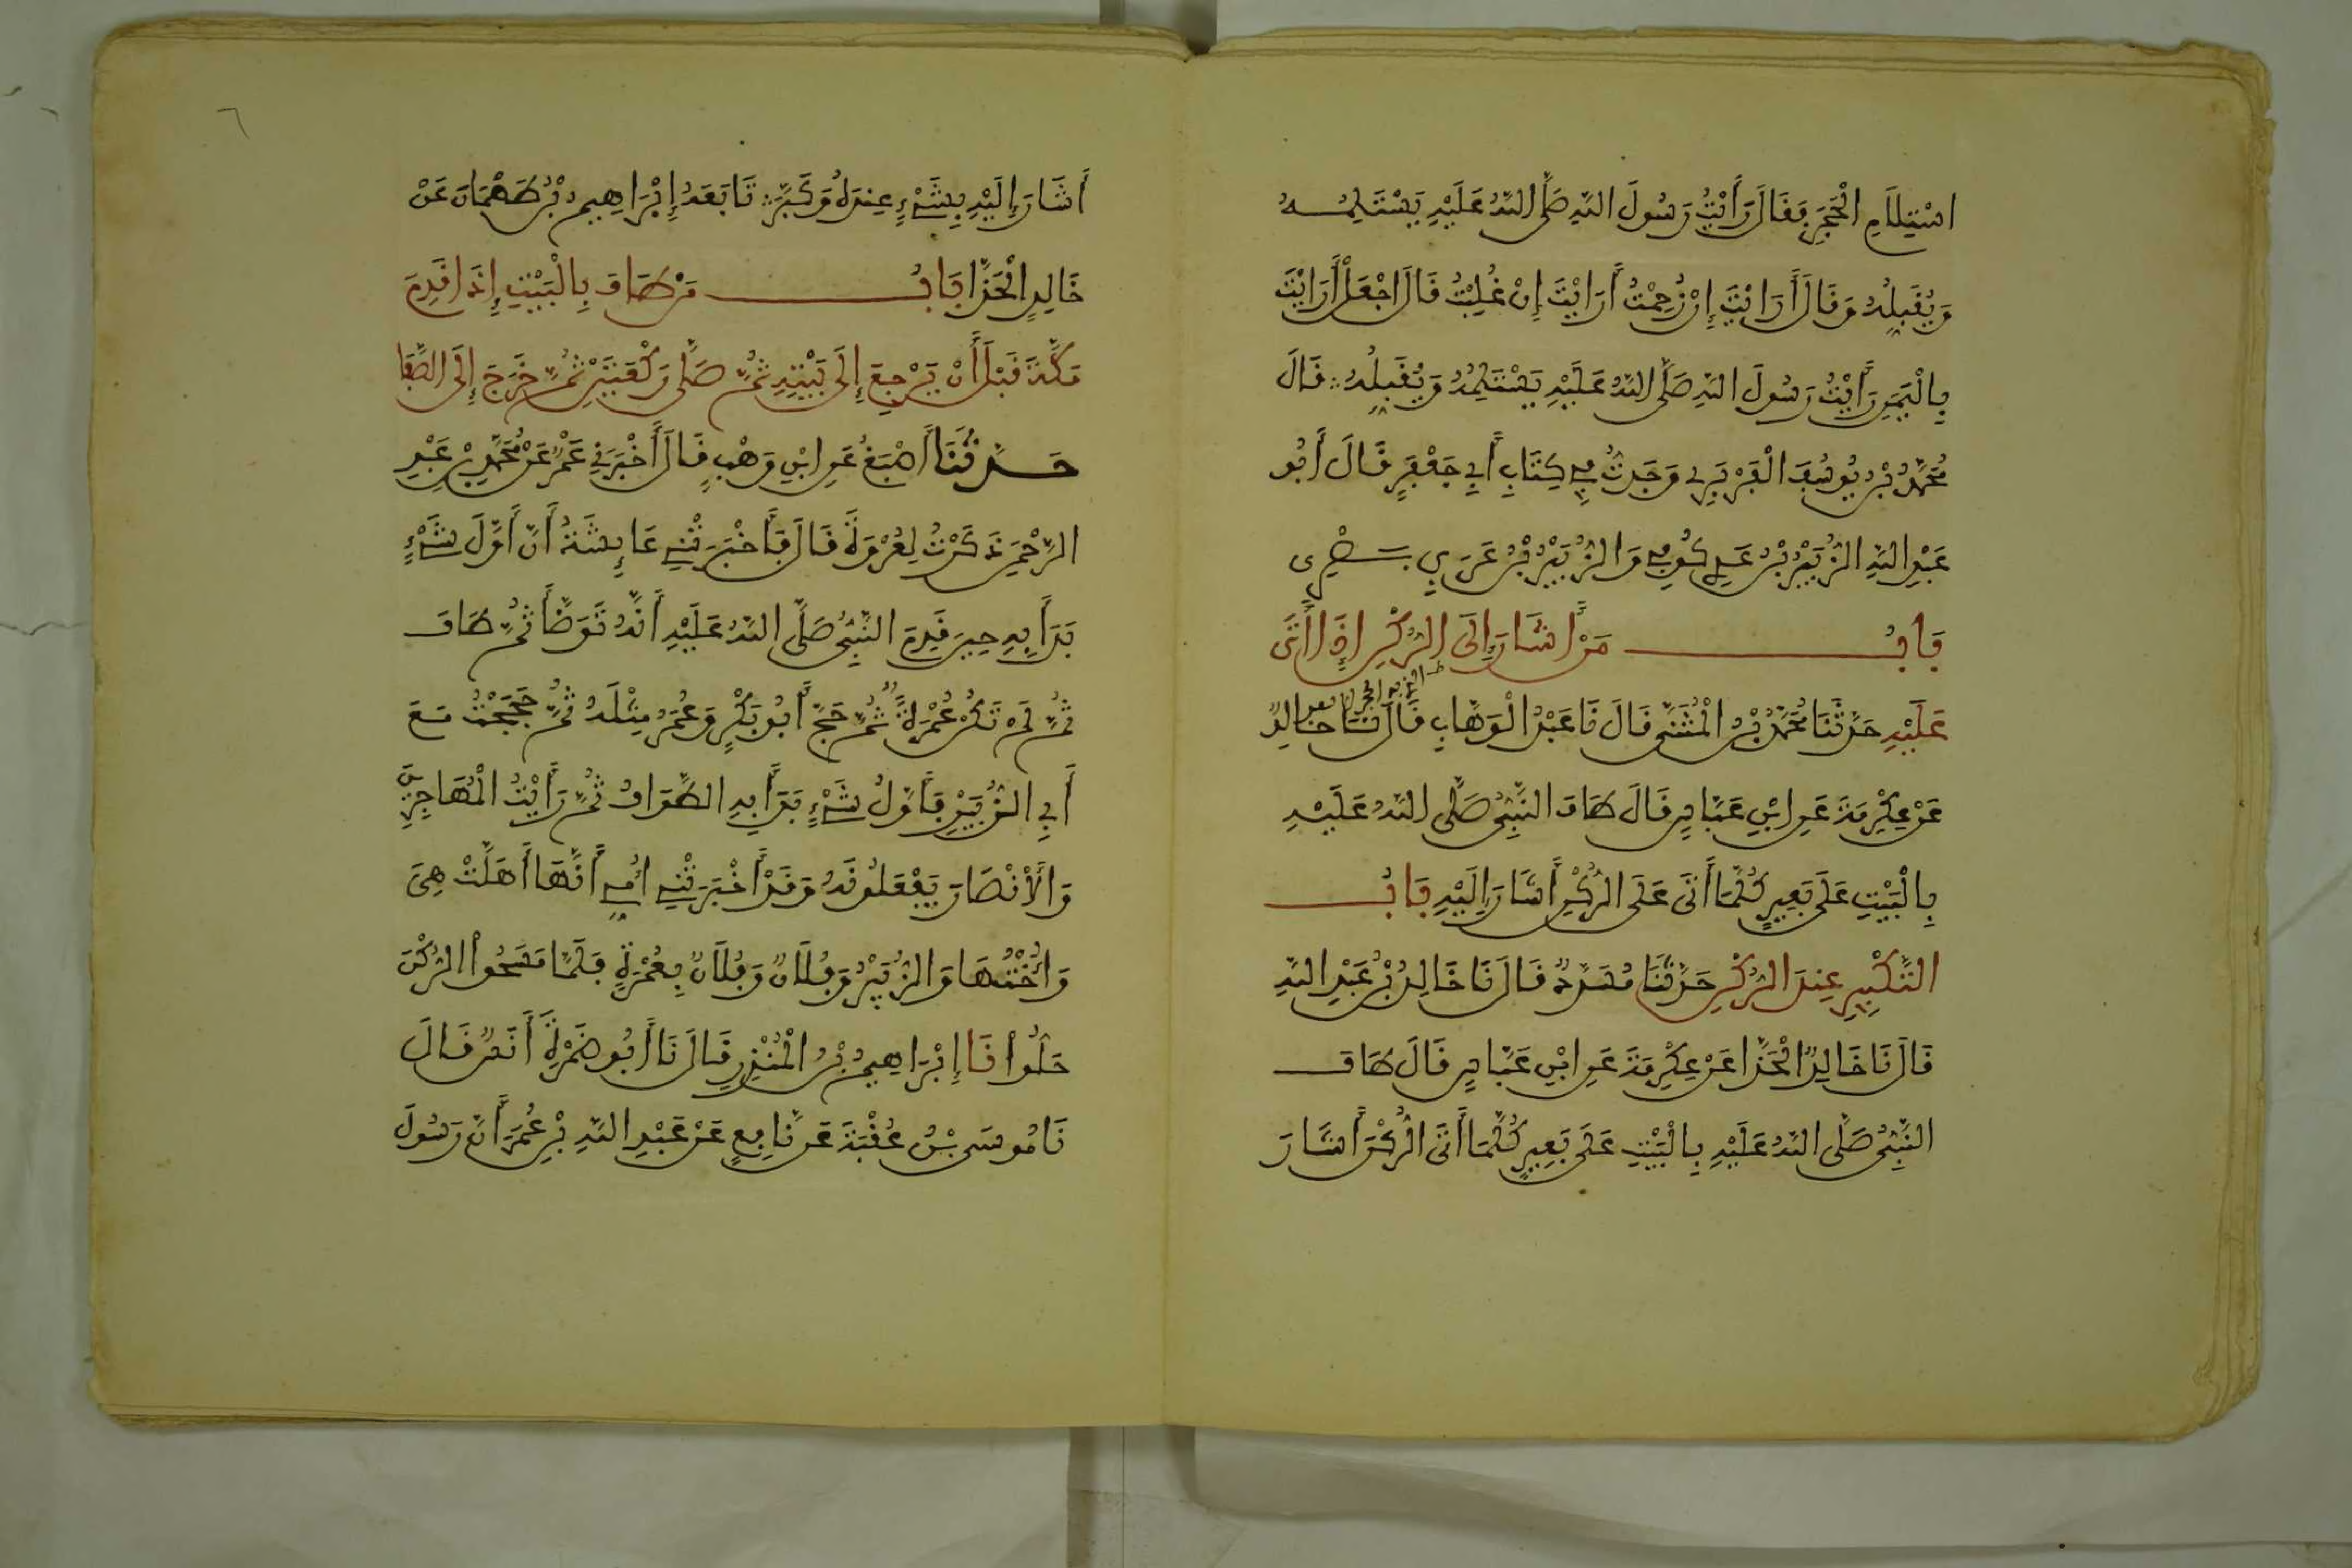 اسْتِلَامِ الْحَجَرِ فَقَالَ رَأَيْتُ رَسُولَ اللَّهِ صَلَّى اللَّهُ عَلَيْهِ يَسْتَلِمُهُ
وَيُقَبِّلُهُ وَقَالَ أَرَايْتَ إِنْ زُحِمْتُ أَرَايْتَ إِنْ غُلِبْتُ قَالَ اجْعَلْ أَرَايْتَ
بِالْيَمَنِ رَأَيْتُ رَسُولَ اللَّهِ صَلَّى اللَّهُ عَلَيْهِ يَسْتَلِمُهُ وَيُقَبِّلُهُ قَالَ
مُحَمَّدُ بْنُ يُوسُفَ الْفَرَبْرِي وَجَدتُّ فِي كِتَابِ أَبِي جَعْفَرٍ قَالَ أَبُو
عَبْدِ اللَّهِ الزُّبَيْرُ بْنُ عَدِي كُوفِي وَالزُّبَيْرُ بْنُ عَرَبِي بَصْرِي
بَابُ مَنْ أَشَارَ إِلَى الرُّكْنِ إِذَا أَتَى
عَلَيْهِ حَدَّثَنَا مُحَمَّدُ بْنُ الْمُثَنَّى قَالَ نَا عَبْدُ الْوَهَّابِ قَالَ نَا خَالِدٌ
عَنْ عِكْرِمَةَ عَنِ ابْنِ عَبَّاسٍ قَالَ طَافَ النَّبِيُّ صَلَّى اللَّهُ عَلَيْهِ
بِالْبَيْتِ عَلَى بَعِيرٍ كُلَّمَا أَتَى عَلَى الرُّكْنِ أَشَارَ إِلَيْهِ بَابُ
التَّكْبِيرِ عِندَ الرُّكْنِ حَدَّثَنَا مُسَدَّدٌ قَالَ نَا خَالِدُ بْنُ عَبْدِ اللَّهِ
قَالَ نَا خَالِدٌ الْحَذَّا عَنْ عِكْرِمَةَ عَنِ ابْنِ عَبَّاسٍ قَالَ طَافَ
النَّبِيُّ صَلَّى اللَّهُ عَلَيْهِ بِالْبَيْتِ عَلَى بَعِيرٍ كُلَّمَا أَتَى الرُّكْنَ أَشَارَ
٦
أَشَارَ إِلَيْهِ بِشَيْءٍ عِندَهُ وَكَبَّرَ تَابَعَهُ إِبْرَاهِيمُ بْنُ طَهْمَانَ عَنْ
خَالِدٍ الْحَذَّا بَابُ مَنْ طَافَ بِالْبَيْتِ إِذَا قَدِمَ
مَكَّةَ قَبْلَ أَنْ يَرْجِعَ إِلَى بَيْتِهِ ثُمَّ صَلَّى رَكْعَتَيْنِ ثُمَّ خَرَجَ إِلَى الصَّفَا
حَدَّثَنَا أَصْبَغُ عَنِ ابْنِ وَهْبٍ قَالَ أَخْبَرَنِي عَمْرٌ عَنْ مُحَمَّدِ بْنِ عَبْدِ
الرَّحْمَنِ ذَكَرْتُ لِعُرْوَةَ قَالَ فَأَخْبَرَتْنِي عَايِشَةُ أَنَّ أَوَّلَ شَيْءٍ
بَدَأَ بِهِ حِينَ قَدِمَ النَّبِيُّ صَلَّى اللَّهُ عَلَيْهِ أَنَّهُ تَوَضَّأَ ثُمَّ طَافَ
ثُمَّ لَمْ تَكُنْ عُمْرَةً ثُمَّ حَجَّ أَبُو بَكْرٍ وَعُمَرُ مِثْلَهُ ثُمَّ حَجَجْتُ مَعَ
أَبِي الزُّبَيْرِ فَأَوَّلُ شَيْءٍ بَدَأَ بِهِ الطَّوَافُ ثُمَّ رَأَيْتُ الْمُهَاجِرِينَ
وَالْأَنْصَارَ يَفْعَلُونَهُ وَقَدْ أَخْبَرَتْنِي أُمِّي أَنَّهَا أَهَلَّتْ هِيَ
وَأُخْتُهَا وَالزُّبَيْرُ وَفُلَانٌ وَفُلَانٌ بِعُمْرَةٍ فَلَمَّا مَسَحُوا الرُّكْنَ
حَلُّوا نَا إِبْرَاهِيمُ بْنُ الْمُنْذِرِ قَالَ نَا أَبُو ضَمْرَةَ أَنَسٌ قَالَ
نَا مُوسَى بْنُ عُقْبَةَ عَن نَّافِعٍ عَنْ عَبْدِ اللَّهِ بْنِ عُمَرَ أَنَّ رَسُولَ